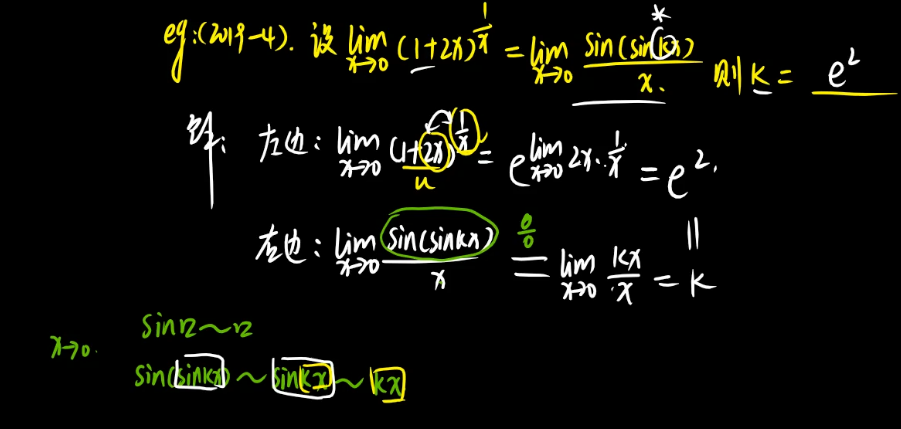 eg:(2019-4). 设 lim x→0 (1+2x)^(1/x) = lim x→0 sin(sinkx)/x. 则 k = e²
解: 左边: lim x→0 (1+2x)^(1/x) = e^(lim x→0 2x·1/x) = e².
u
右边: lim x→0 sin(sinkx)/x 0/0 = lim x→0 kx/x = k
x→0. sin☐~☐
sin(sinkx) ~ sinkx ~ kx